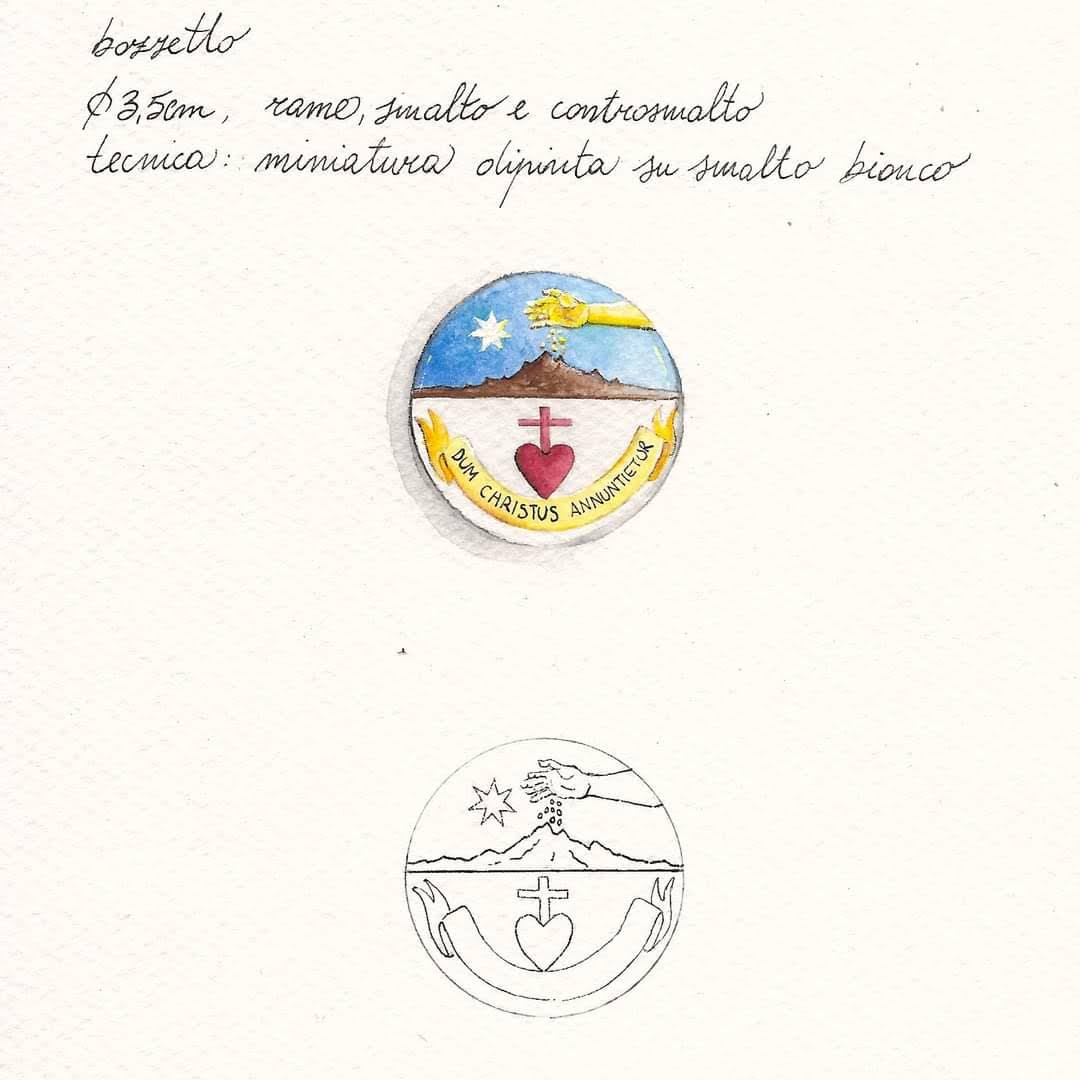 bozzetto
⌀ 3,5cm, rame, smalto e controsmalto
tecnica: miniatura dipinta su smalto bianco
DUM CHRISTUS ANNUNTIETUR